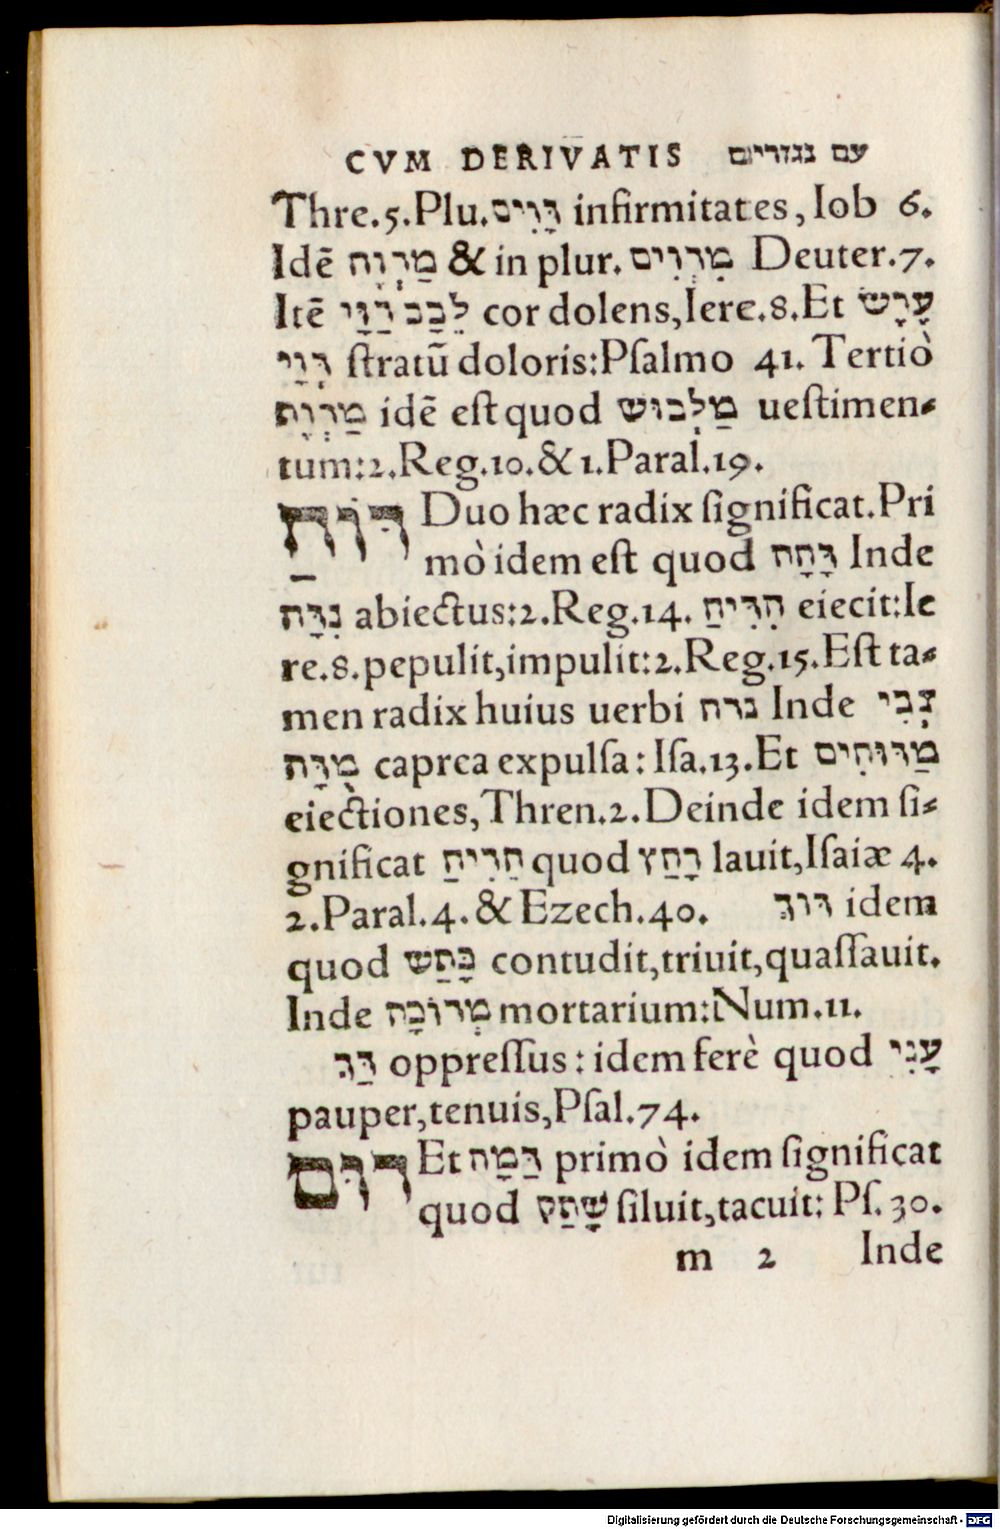 CVM DERIVATIS עם נגזרים
Thre.5.Plu.דָּוִים infirmitates, Iob 6.
Idē מַדְוֶה & in plur. מִדְוִים Deuter.7.
Itē לֵבָב דַּוָּי cor dolens, Iere.8. Et עָרֶשׂ
דְּוַי ſtratū doloris: Pſalmo 41. Tertiò
מַדְוֶה idē eſt quod מַלְבּוּשׁ ueſtimen⸗
tum: 2.Reg.10. & 1.Paral.19.
דּוּחַ Duo hæc radix ſignificat. Pri
mò idem eſt quod דָּחָה Inde
נִדָּח abiectus: 2.Reg.14. הִדִּיחַ eiecit: Ie
re.8. pepulit, impulit: 2.Reg.15. Eſt ta⸗
men radix huius uerbi נדח Inde צְבִי
מֻדָּח caprea expulſa: Iſa.13. Et מַדּוּחִים
eiectiones, Thren.2. Deinde idem ſi⸗
gnificat הֵדִיחַ quod רָחַץ lauit, Iſaiæ 4.
2.Paral.4. & Ezech.40. דּוּךְ idem
quod כָּתַשׁ contudit, triuit, quaſſauit.
Inde מְדוֹכָה mortarium: Num.11.
דַּךְ oppreſſus: idem ferè quod עָנִי
pauper, tenuis, Pſal.74.
דּוּם Et דָּמָה primò idem ſignificat
quod שָׁתַק ſiluit, tacuit: Pſ.30.
m 2 Inde
Digitalisierung gefördert durch die Deutsche Forschungsgemeinschaft - DFG